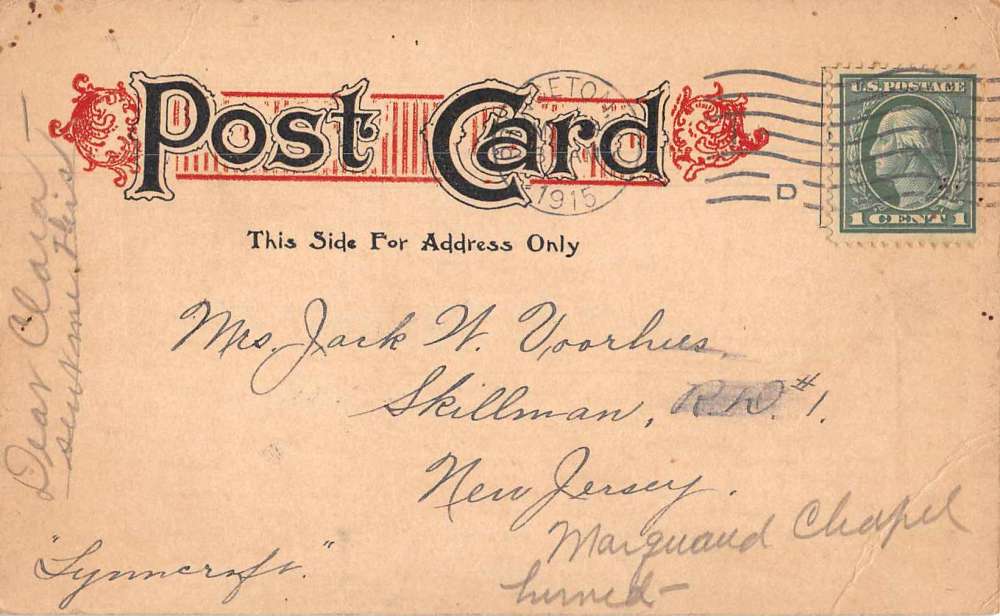 Post Card
1915
D
U.S. POSTAGE
1 CENT 1
This Side For Address Only
Mrs. Jack W. Voorhees.
Skillman, R.D. #1.
New Jersey.
"Lynncroft".
Marquand Chapel
burned—
Dear Clara—
this